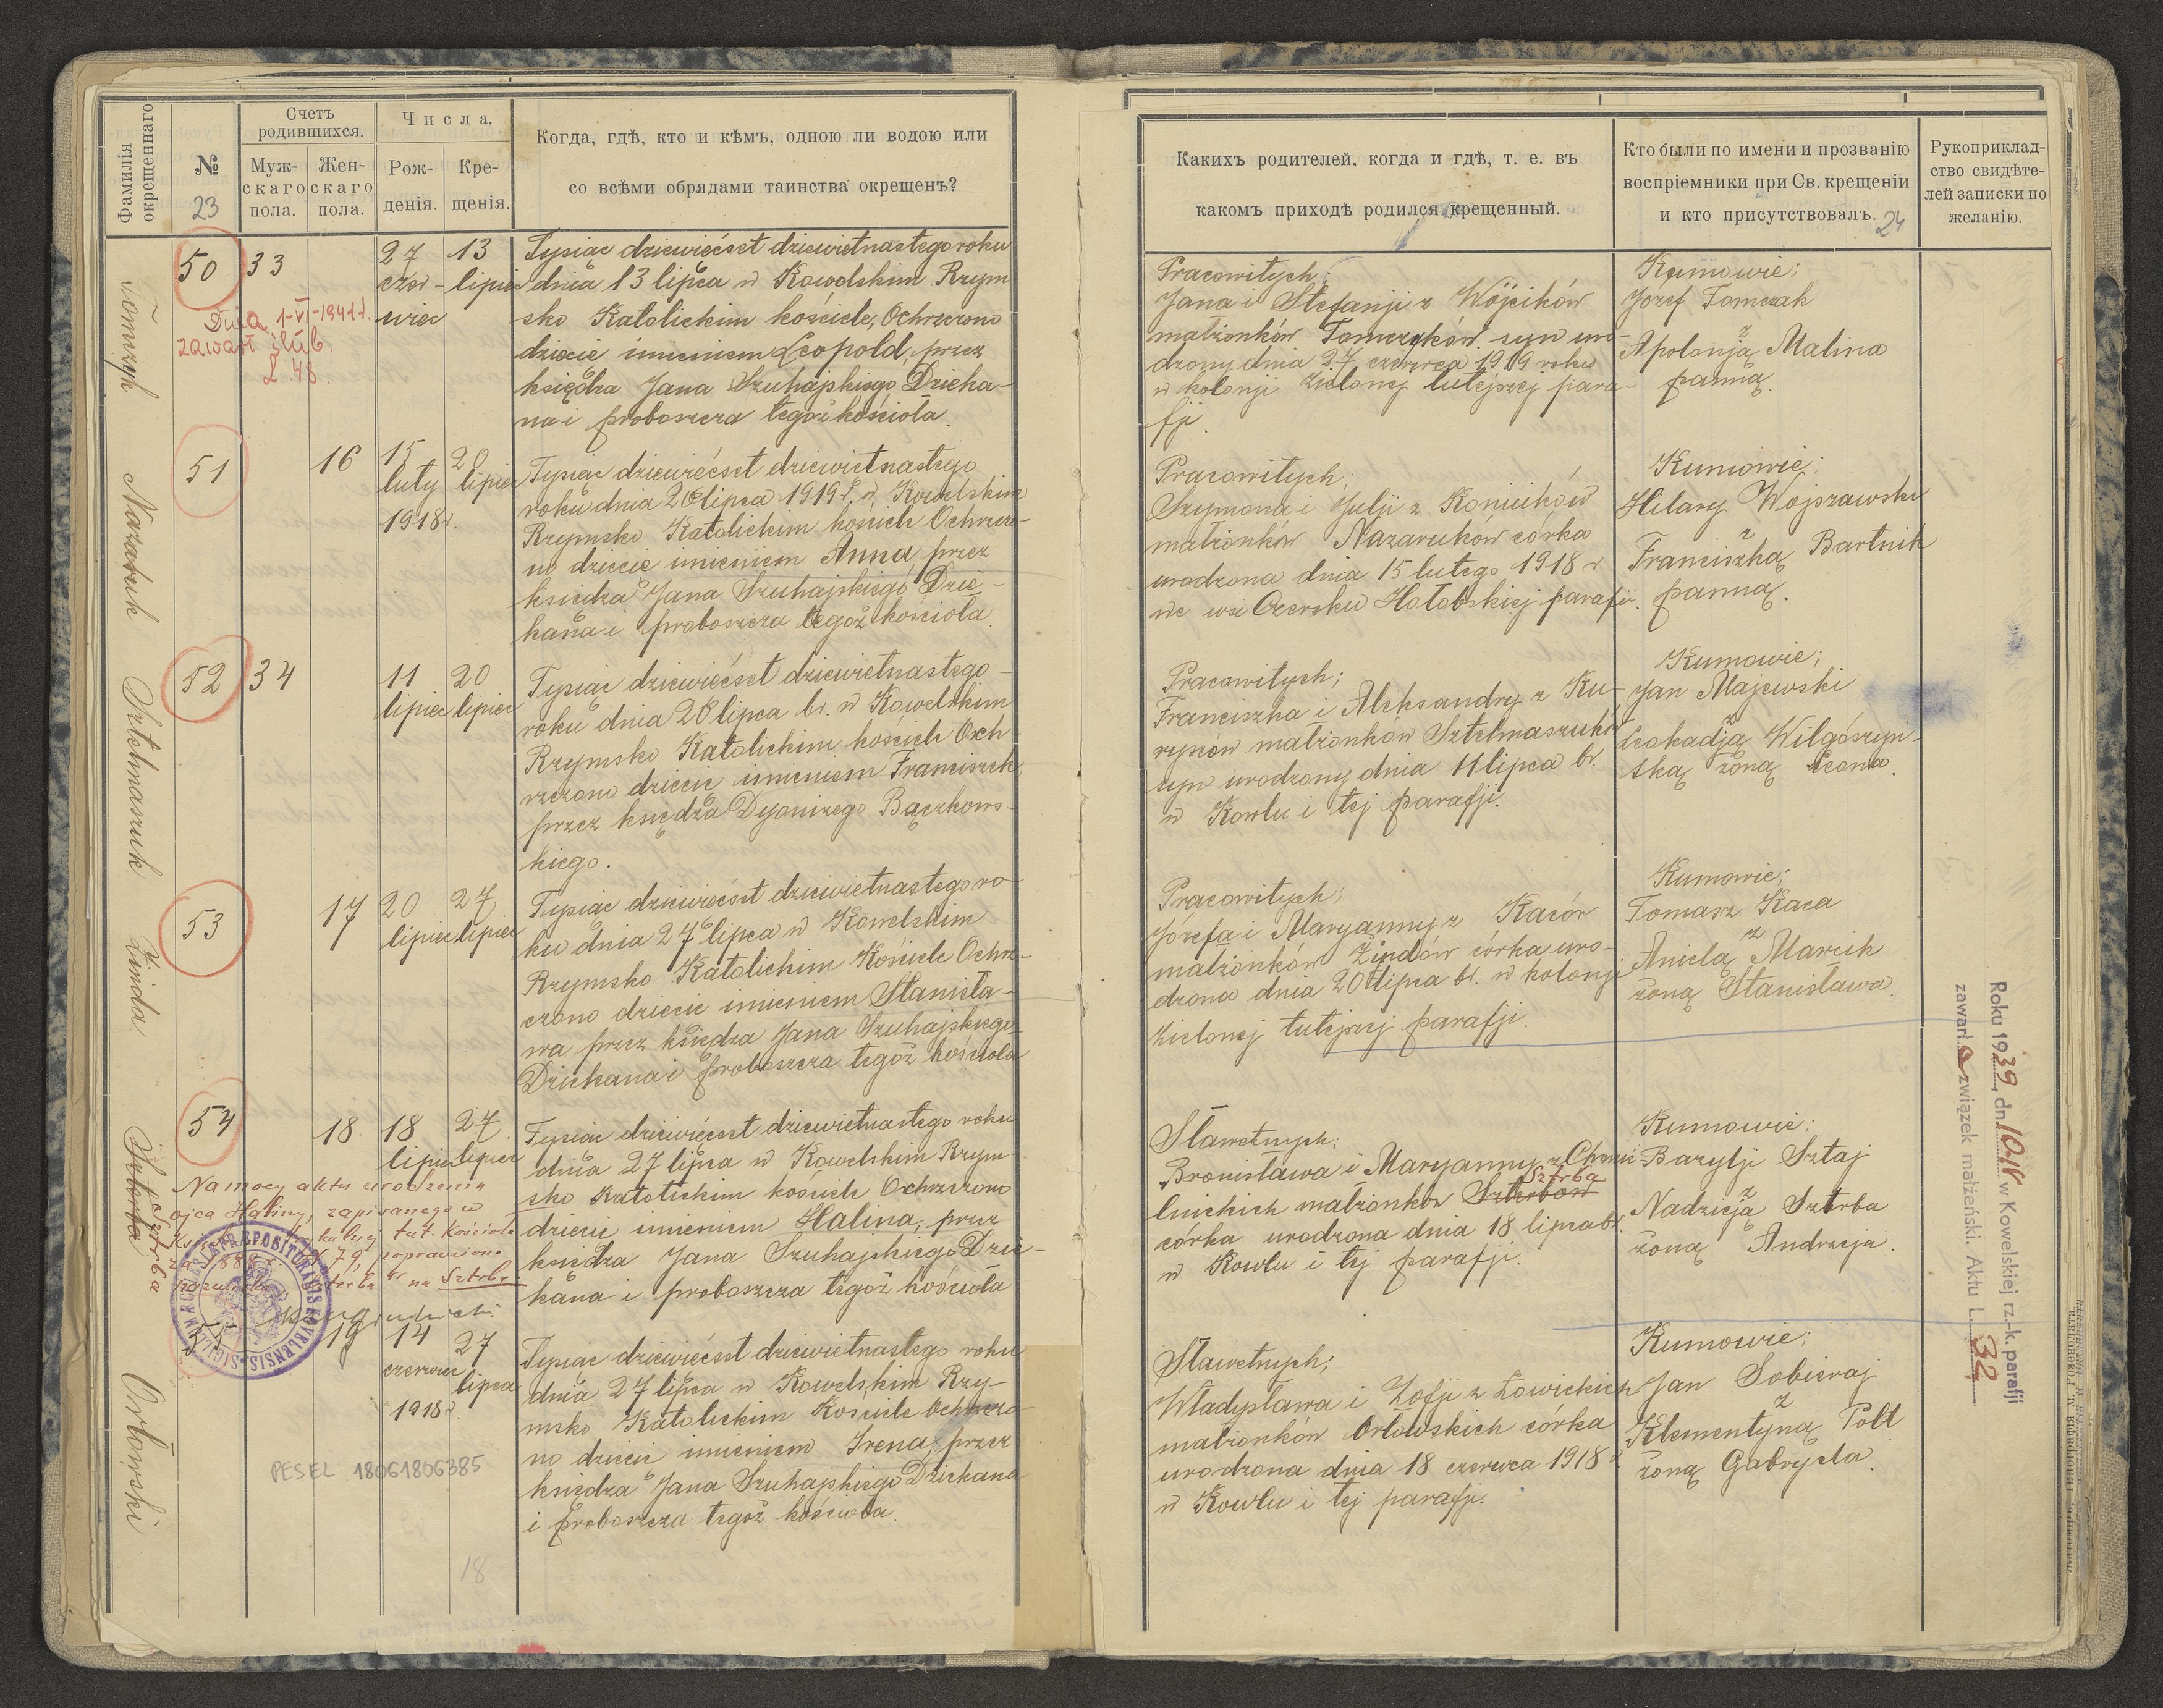 Фамилія окрещеннаго
№
23
Счетъ родившихся.
Муж-скаго пола.
Жен-скаго пола.
Числа.
Рож-денія.
Кре-щенія.
Когда, гдѣ, кто и кѣмъ, одною ли водою или
со всѣми обрядами таинства окрещенъ?
Tomczyk
50
33
27 czer-wiec
13 lipiec
Dnia 1-VI-1941 r.
zawarł ślub.
L. 48.
Tysiąc dziewięćset dziewiętnastego roku
dnia 13 lipca w Kowelskim Rzym
sko Katolickim kościele, Ochrzczono
dziecie imieniem Leopold, przez
księdza Jana Szuhajskiego Dzieka-
na i proboszcza tegoż kościoła.
Nazaruk
51
16
15 luty 1918 r.
20 lipiec
Tysiąc dziewięćset dziewiętnastego
roku dnia 20 lipca 1919 r. w Kowelskim
Rzymsko Katolickim kościele Ochrzczo-
no dziecie imieniem Anna, przez
księdza Jana Szuhajskiego Dzie-
kana i proboszcza tegoż kościoła.
Sztelmaszuk
52
34
11 lipiec
20 lipiec
Tysiąc dziewięćset dziewiętnastego
roku dnia 20 lipca br. w Kowelskim
Rzymsko Katolickim kościele Och
rzczono dziecie imieniem Franciszek
przez księdza Dyonizego Bączkows-
kiego.
Zinda
53
17
20 lipiec
27 lipiec
Tysiąc dziewięćset dziewiętnastego ro-
ku dnia 27 lipca w Kowelskim
Rzymsko Katolickim Kościele Ochrz-
czono dziecie imieniem Stanisła-
wa przez księdza Jana Szuhajskiego
Dziekana i proboszcza tegoż kościoła
Szterba
Sztrba
54
18
18 lipiec
27 lipiec
Na mocy aktu urodzenia
ojca Haliny, zapisanego w
tut. kościoła
poprawiono
na Sztrba
Tysiąc dziewięćset dziewiętnastego roku
dnia 27 lipca w Kowelskim Rzym-
sko Katolickim kościele Ochrzczono
dziecie imieniem Halina, przez
księdza Jana Szuhajskiego Dzie-
kana i proboszcza tegoż kościoła
Orłowski
55
19
14 czerwiec 1918 r.
27 lipca
Tysiąc dziewięćset dziewiętnastego roku
dnia 27 lipca w Kowelskim Rzy-
msko Katolickim Kościele Ochrzczo-
no dziecie imieniem Irena, przez
księdza Jana Szuhajskiego Dziekana
i proboszcza tegoż kościoła.
PESEL 18061806385
18
Какихъ родителей, когда и гдѣ, т. е. въ
какомъ приходѣ родился крещенный.
Кто были по имени и прозванію
воспріемники при Св. крещеніи
и кто присутствовалъ.
24
Рукоприклад-
ство свидѣте-
лей записки по
желанію.
Pracowitych;
Jana i Stefanji z Wójcików
małżonków Tomczyków syn uro-
dzony dnia 27 czerwca 1919 roku
w kolonji Zielonej tutejszej para-
fji.
Kumowie;
Józef Tomczak
z
Apolonją Malina
panną.
Pracowitych;
Szymona i Julji z Koniuków
małżonków Nazaruków córka
urodzona dnia 15 lutego 1918 r
we wsi Ozersku Hołobskiej parafji.
Kumowie;
Hilary Wojszawski
z
Franciszką Bartnik
panną.
Pracowitych;
Franciszka i Aleksandry z Ku-
rysów małżonków Sztelmaszuków
syn urodzony dnia 11 lipca br.
w Kowlu i tej parafji.
Kumowie;
Jan Majewski
Leokadją Wilgószyń-
ską żoną Leona.
Pracowitych;
Józefa i Maryanny z Kaców
małżonków Zindów córka uro-
dzona dnia 20 lipca br. w kolonji
Zielonej tutejszej parafji.
Kumowie;
Tomasz Kaca
z
Anielą Marcik
żoną Stanisława.
Sławetnych;
Bronisława i Maryanny z Chmie-
lnickich małżonków Szterbów
Sztrba
córka urodzona dnia 18 lipca br.
w Kowlu i tej parafji.
Kumowie;
Bazylji Sztaj
z
Nadzieją Szterba
żoną Andrzeja.
Roku 1939, dn. 10 IV w Kowelskiej rz.-k. parafji
zawarła związek małżeński. Aktu L. 32
Sławetnych;
Władysława i Zofji z Łowickich
małżonków Orłowskich córka
urodzona dnia 18 czerwca 1918 r
w Kowlu i tej parafji.
Kumowie;
Jan Sobieraj
z
Klementyną Polt
żoną Gabryela.